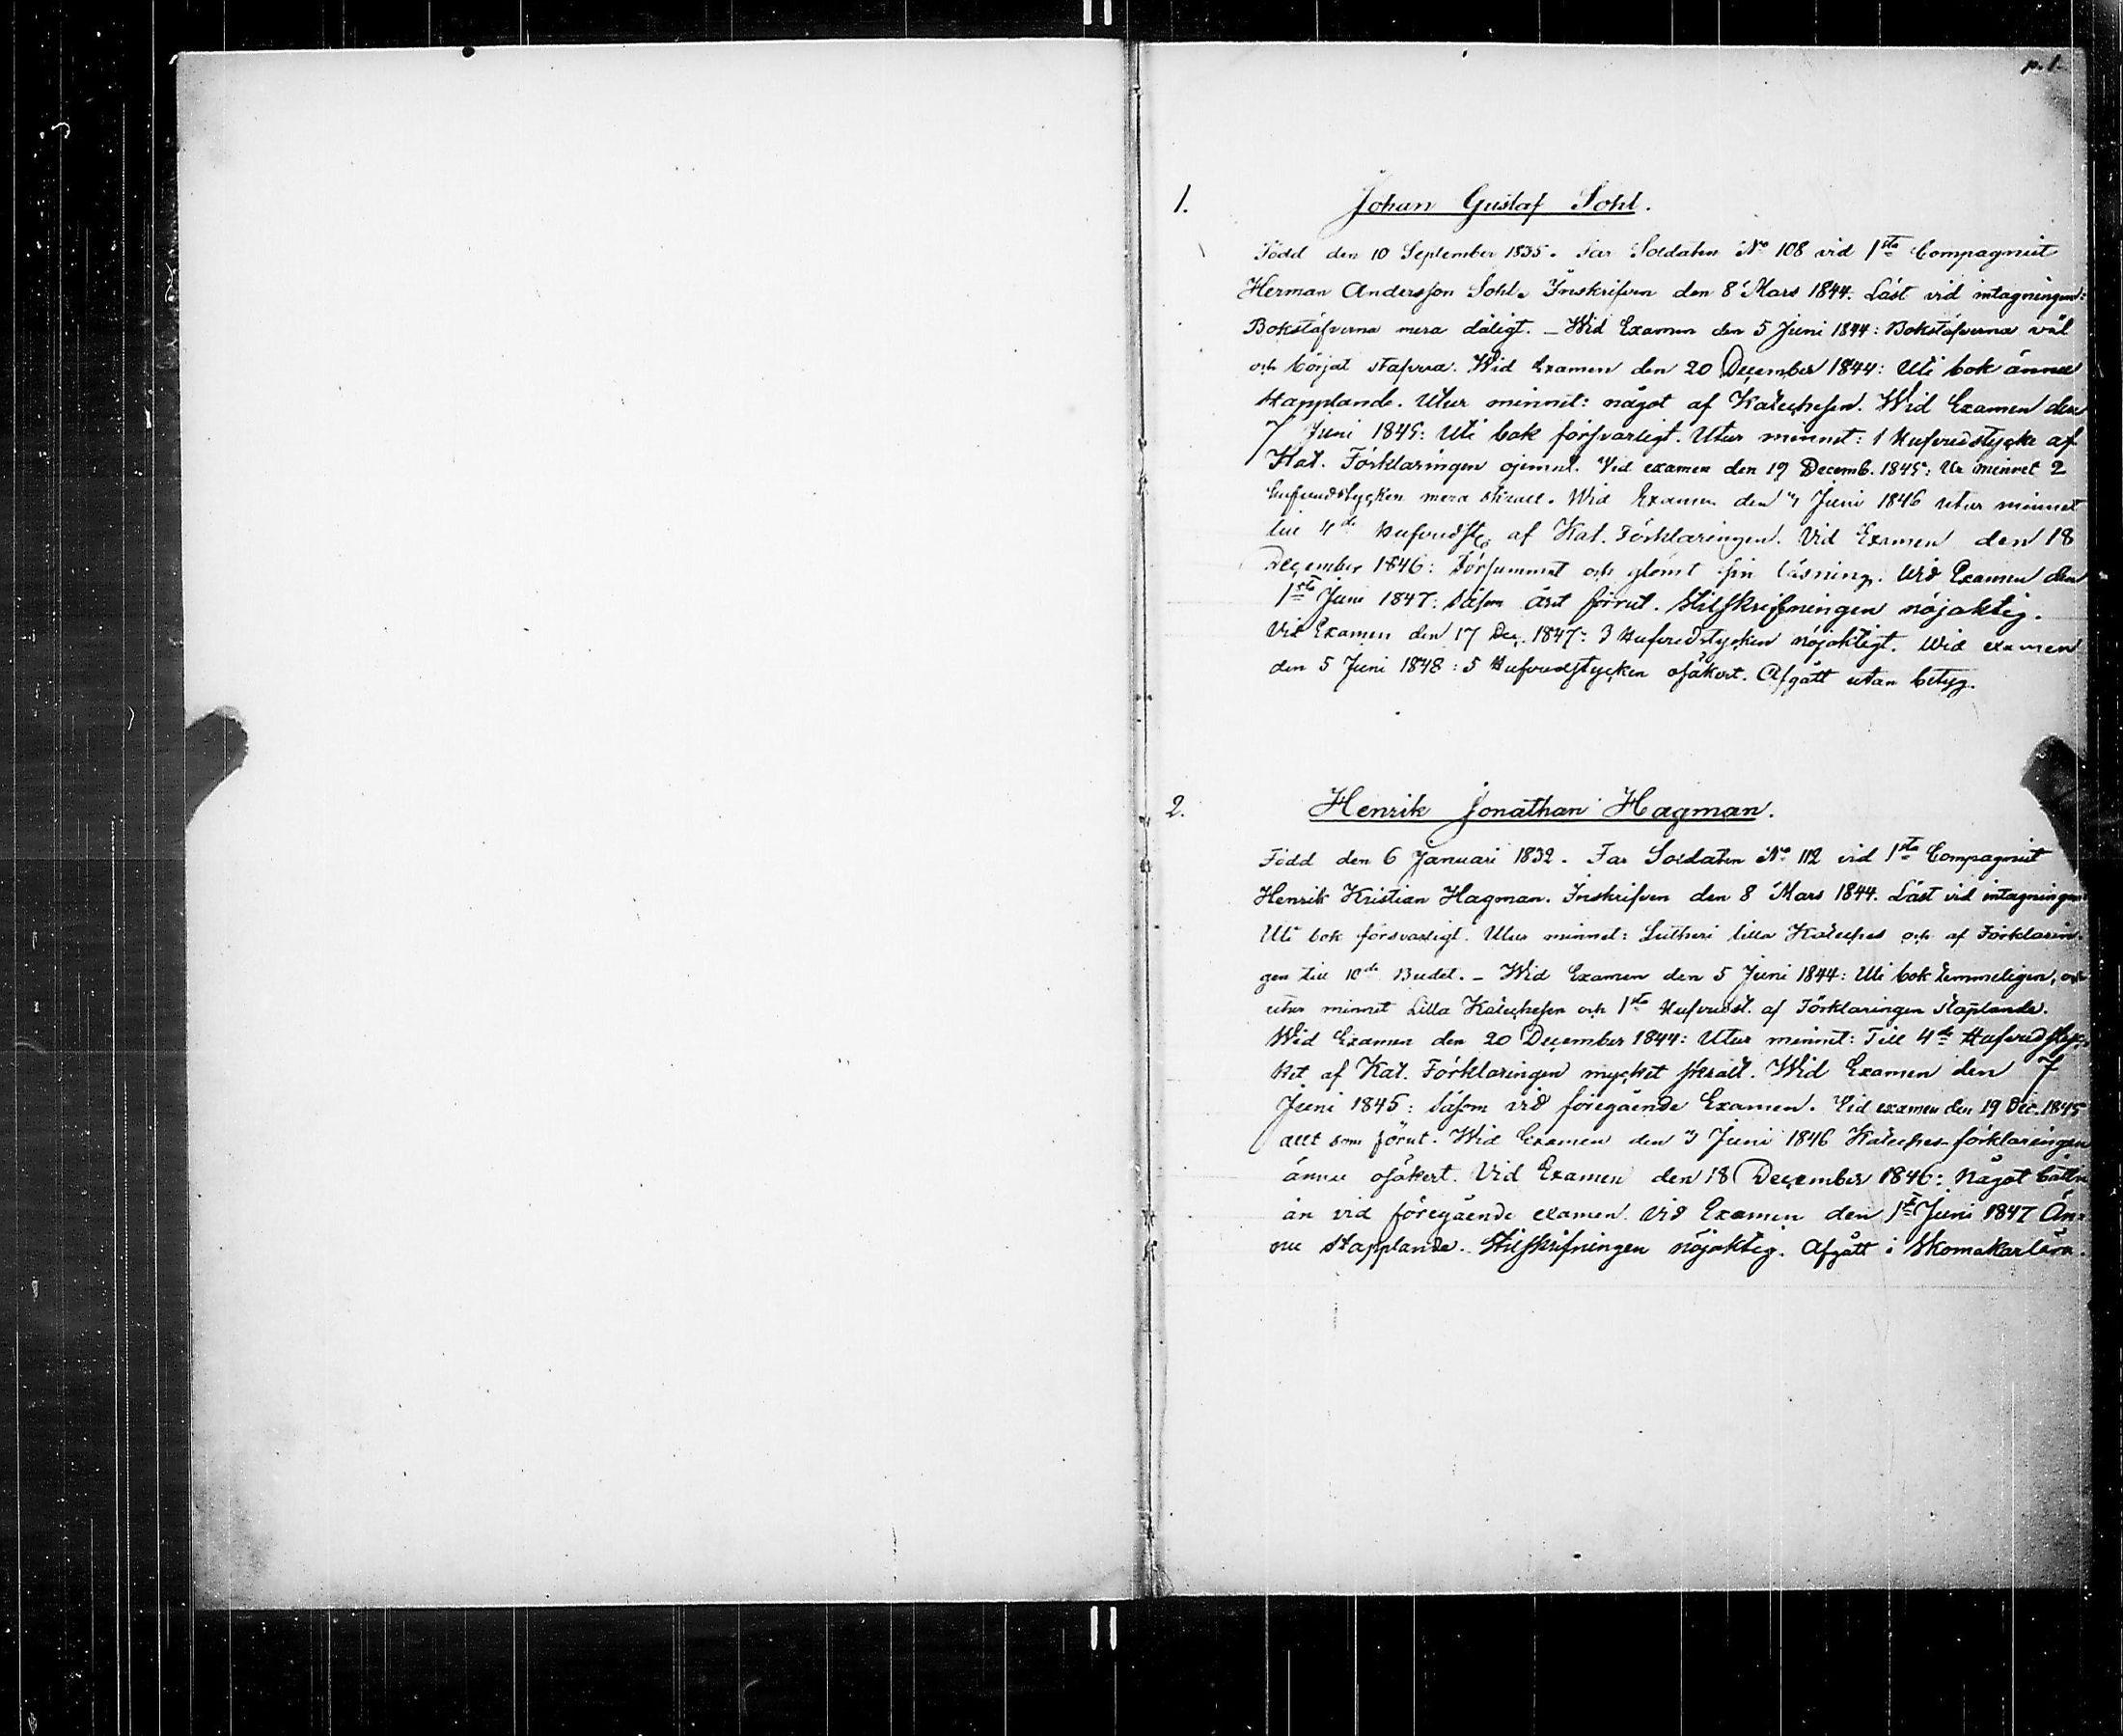 p. 1.
1. Johan Gustaf Sohl.
Född den 10 September 1835. Far Soldaten No 108 vid 1sta Compagniet
Herman Andersson Sohl. Inskrifven den 8 Mars 1844. Läst vid intagningen:
Bokstäfverna mera dåligt. – Wid Examen den 5 Juni 1844: Bokstäfverna väl
och börjat stafvera. Wid Examen den 20 December 1844: Uti bok ännu
stapplande. Utur minnet: något af Katechesen. Wid Examen den
7 Juni 1845: Uti bok försvarligt. Utur minnet: 1 Hufvudstycke af
Kat. Förklaringen ojemnt. Vid examen den 19 Decemb. 1845: Ur minnet 2
hufvudstycken mera skralt. Wid Examen den 3 Juni 1846 utur minnet
till 4de Hufvudst. af Kat. Förklaringen. Vid Examen den 18
December 1846: Försummat och glömt sin läsning. Wid Examen den
1sta Juni 1847: Såsom året förrut. Stilskrifningen nöjaktig.
Vid Examen den 17 Dec. 1847: 3 Hufvudstycken nöjaktigt. Wid examen
den 5 Juni 1848: 5 Hufvudstycken osäkert. Afgått utan betyg.
2. Henrik Jonathan Hagman.
Född den 6 Januari 1832. Far Soldaten No 112 vid 1sta Compagniet
Henrik Kristian Hagman. Inskrifven den 8 Mars 1844. Läst vid intagningen
Uti bok försvarligt. Utur minnet: Lutheri lilla Kateches och af Förklarin-
gen till 10de Budet. – Wid Examen den 5 Juni 1844: Uti bok temmeligen, och
utur minnet Lilla Katechesen och 1sta Hufvudst. af Förklaringen staplande.
Wid Examen den 20 December 1844: Utur minnet: Till 4de Hufvudstyc-
ket af Kat. Förklaringen mycket skralt. Wid Examen den 7
Juni 1845: Såsom vid föregående Examen. Vid examen den 19 Dec. 1845
allt som förut. Wid Examen den 3 Juni 1846 Kateches-förklaringen
ännu osäkert. Vid Examen den 18 December 1846: Något bättre
än vid föregående examen. Vid Examen den 1sta Juni 1847 Än-
nu stapplande. Stilskrifningen nöjaktig. Afgått i Skomakarlära.